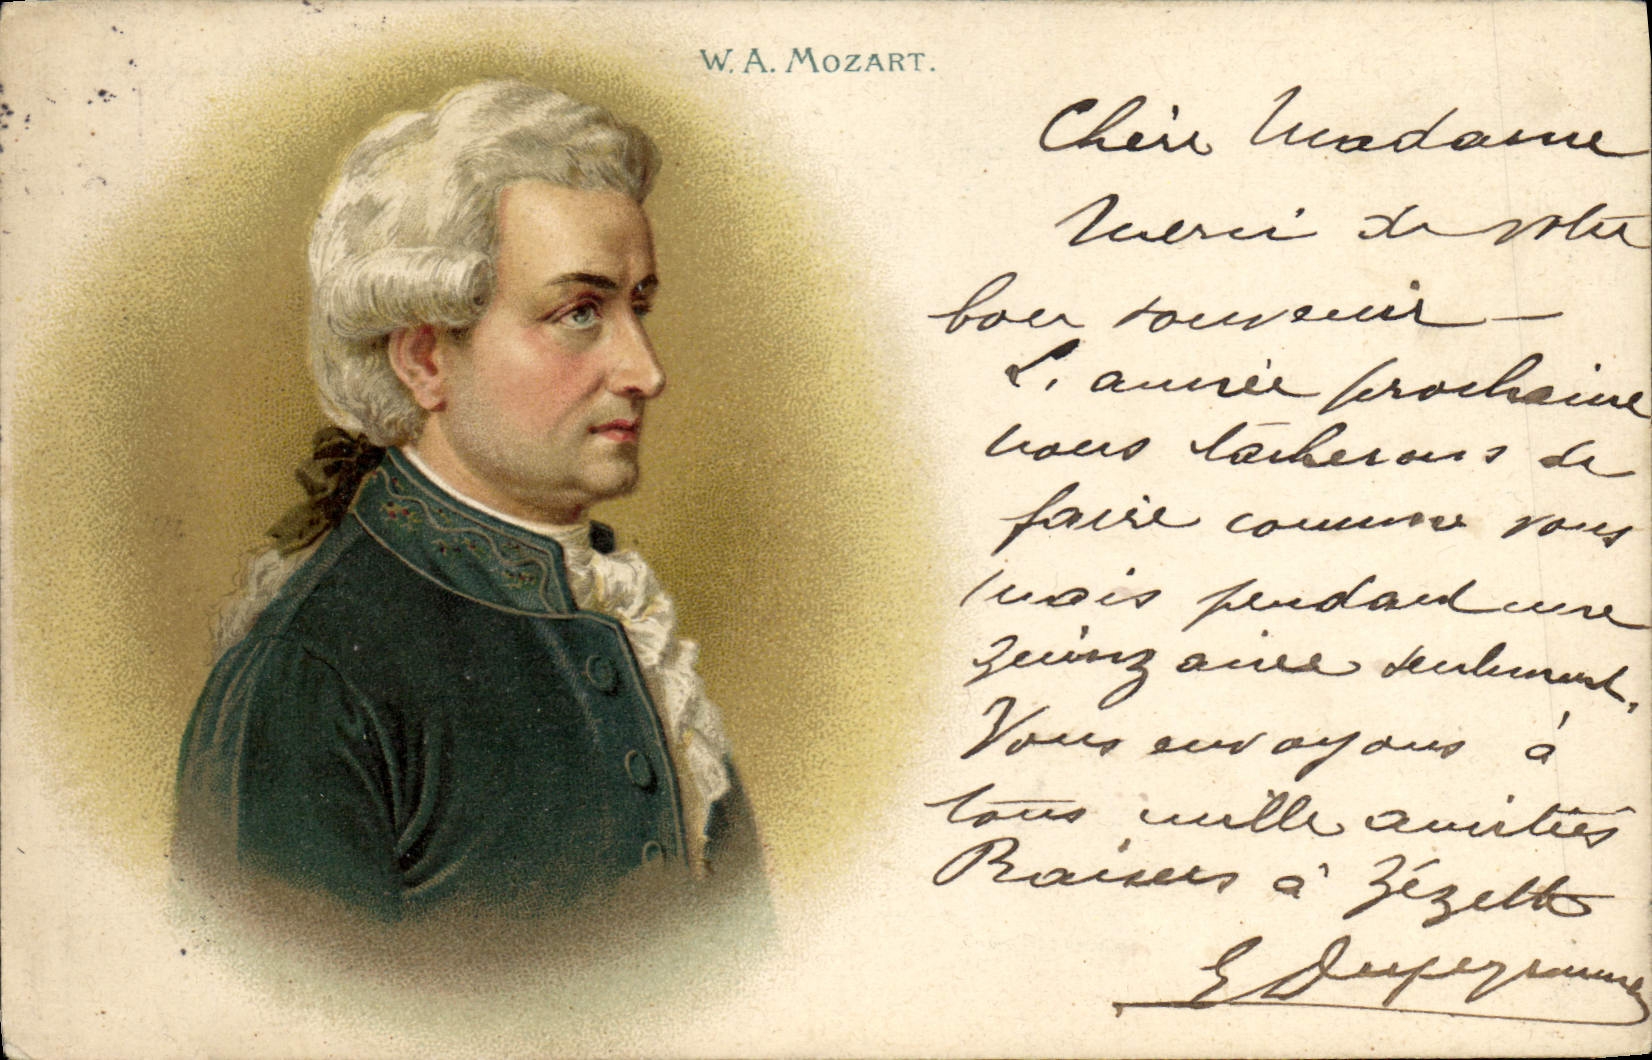 W. A. MOZART.
Chère Madame
Merci de votre
bon souvenir —
L'année prochaine
nous tâcherons de
faire comme vous
mais pendant une
quinzaine seulement,
Vous envoyons à
tous mille amitiés
Baisers à Zézette